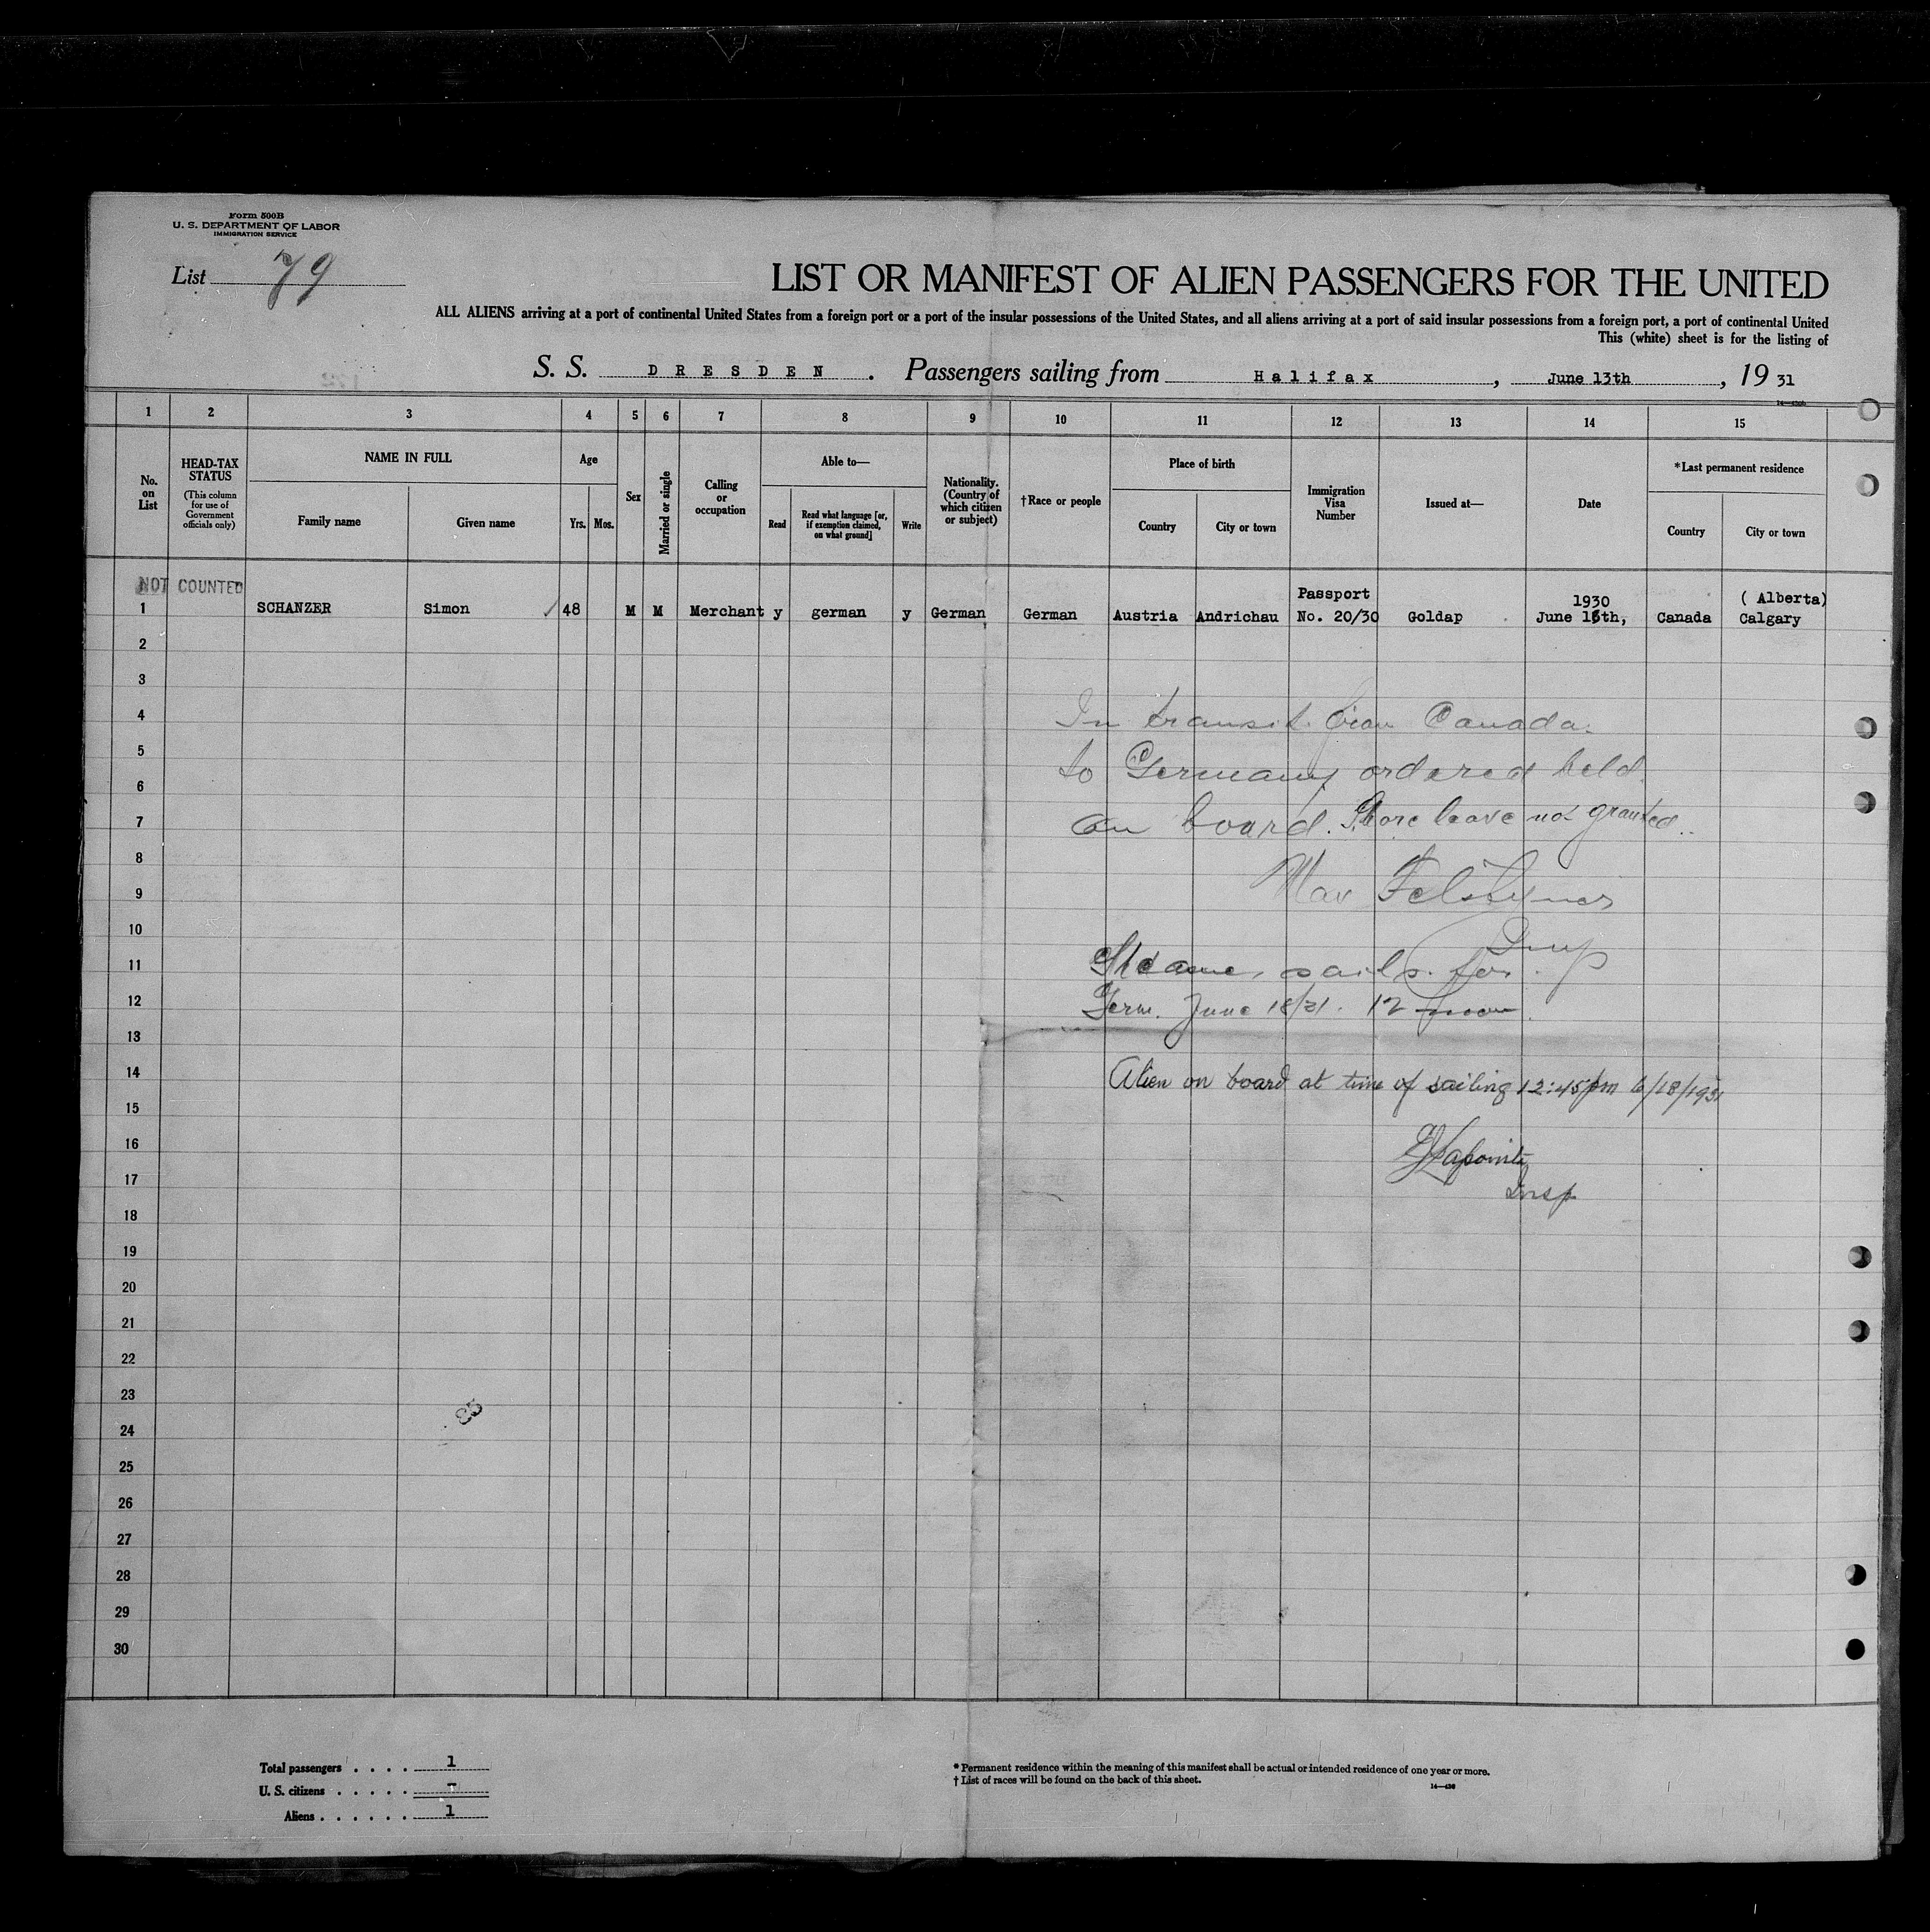 Form 500B
U. S. DEPARTMENT OF LABOR
IMMIGRATION SERVICE
List 79
LIST OR MANIFEST OF ALIEN PASSENGERS FOR THE UNITED
ALL ALIENS arriving at a port of continental United States from a foreign port or a port of the insular possessions of the United States, and all aliens arriving at a port of said insular possessions from a foreign port, a port of continental United
This (white) sheet is for the listing of
S. S. DRESDEN. Passengers sailing from Halifax, June 13th, 19 31
1 2 3 4 5 6 7 8 9 10 11 12 13 14 15
No. on List
HEAD-TAX STATUS
(This column for use of Government officials only)
NAME IN FULL
Family name Given name
Age
Yrs. Mos.
Sex
Married or single
Calling or occupation
Able to—
Read
Read what language [or, if exemption claimed, on what ground]
Write
Nationality. (Country of which citizen or subject)
†Race or people
Place of birth
Country City or town
Immigration Visa Number
Issued at—
Date
*Last permanent residence
Country City or town
NOT COUNTED
Passport 1930 ( Alberta)
1 SCHANZER Simon 48 M M Merchant y german y German German Austria Andrichau No. 20/30 Goldap June 16th, Canada Calgary
2
3
4
In transit from Canada
5
to Germany ordered held
6
7
on board. Shore leave not granted
8
9
Max
10
Insp
11
sails for
12
Germ. June 18/31. 12 noon
13
14
Alien on board at time of sailing 12:45 pm 6/18/1931
15
16
17
Insp
18
19
20
21
22
23
85
24
25
26
27
28
29
30
Total passengers . . . . 1
U. S. citizens . . . . . -
Aliens . . . . . . 1
* Permanent residence within the meaning of this manifest shall be actual or intended residence of one year or more.
† List of races will be found on the back of this sheet.
14—430